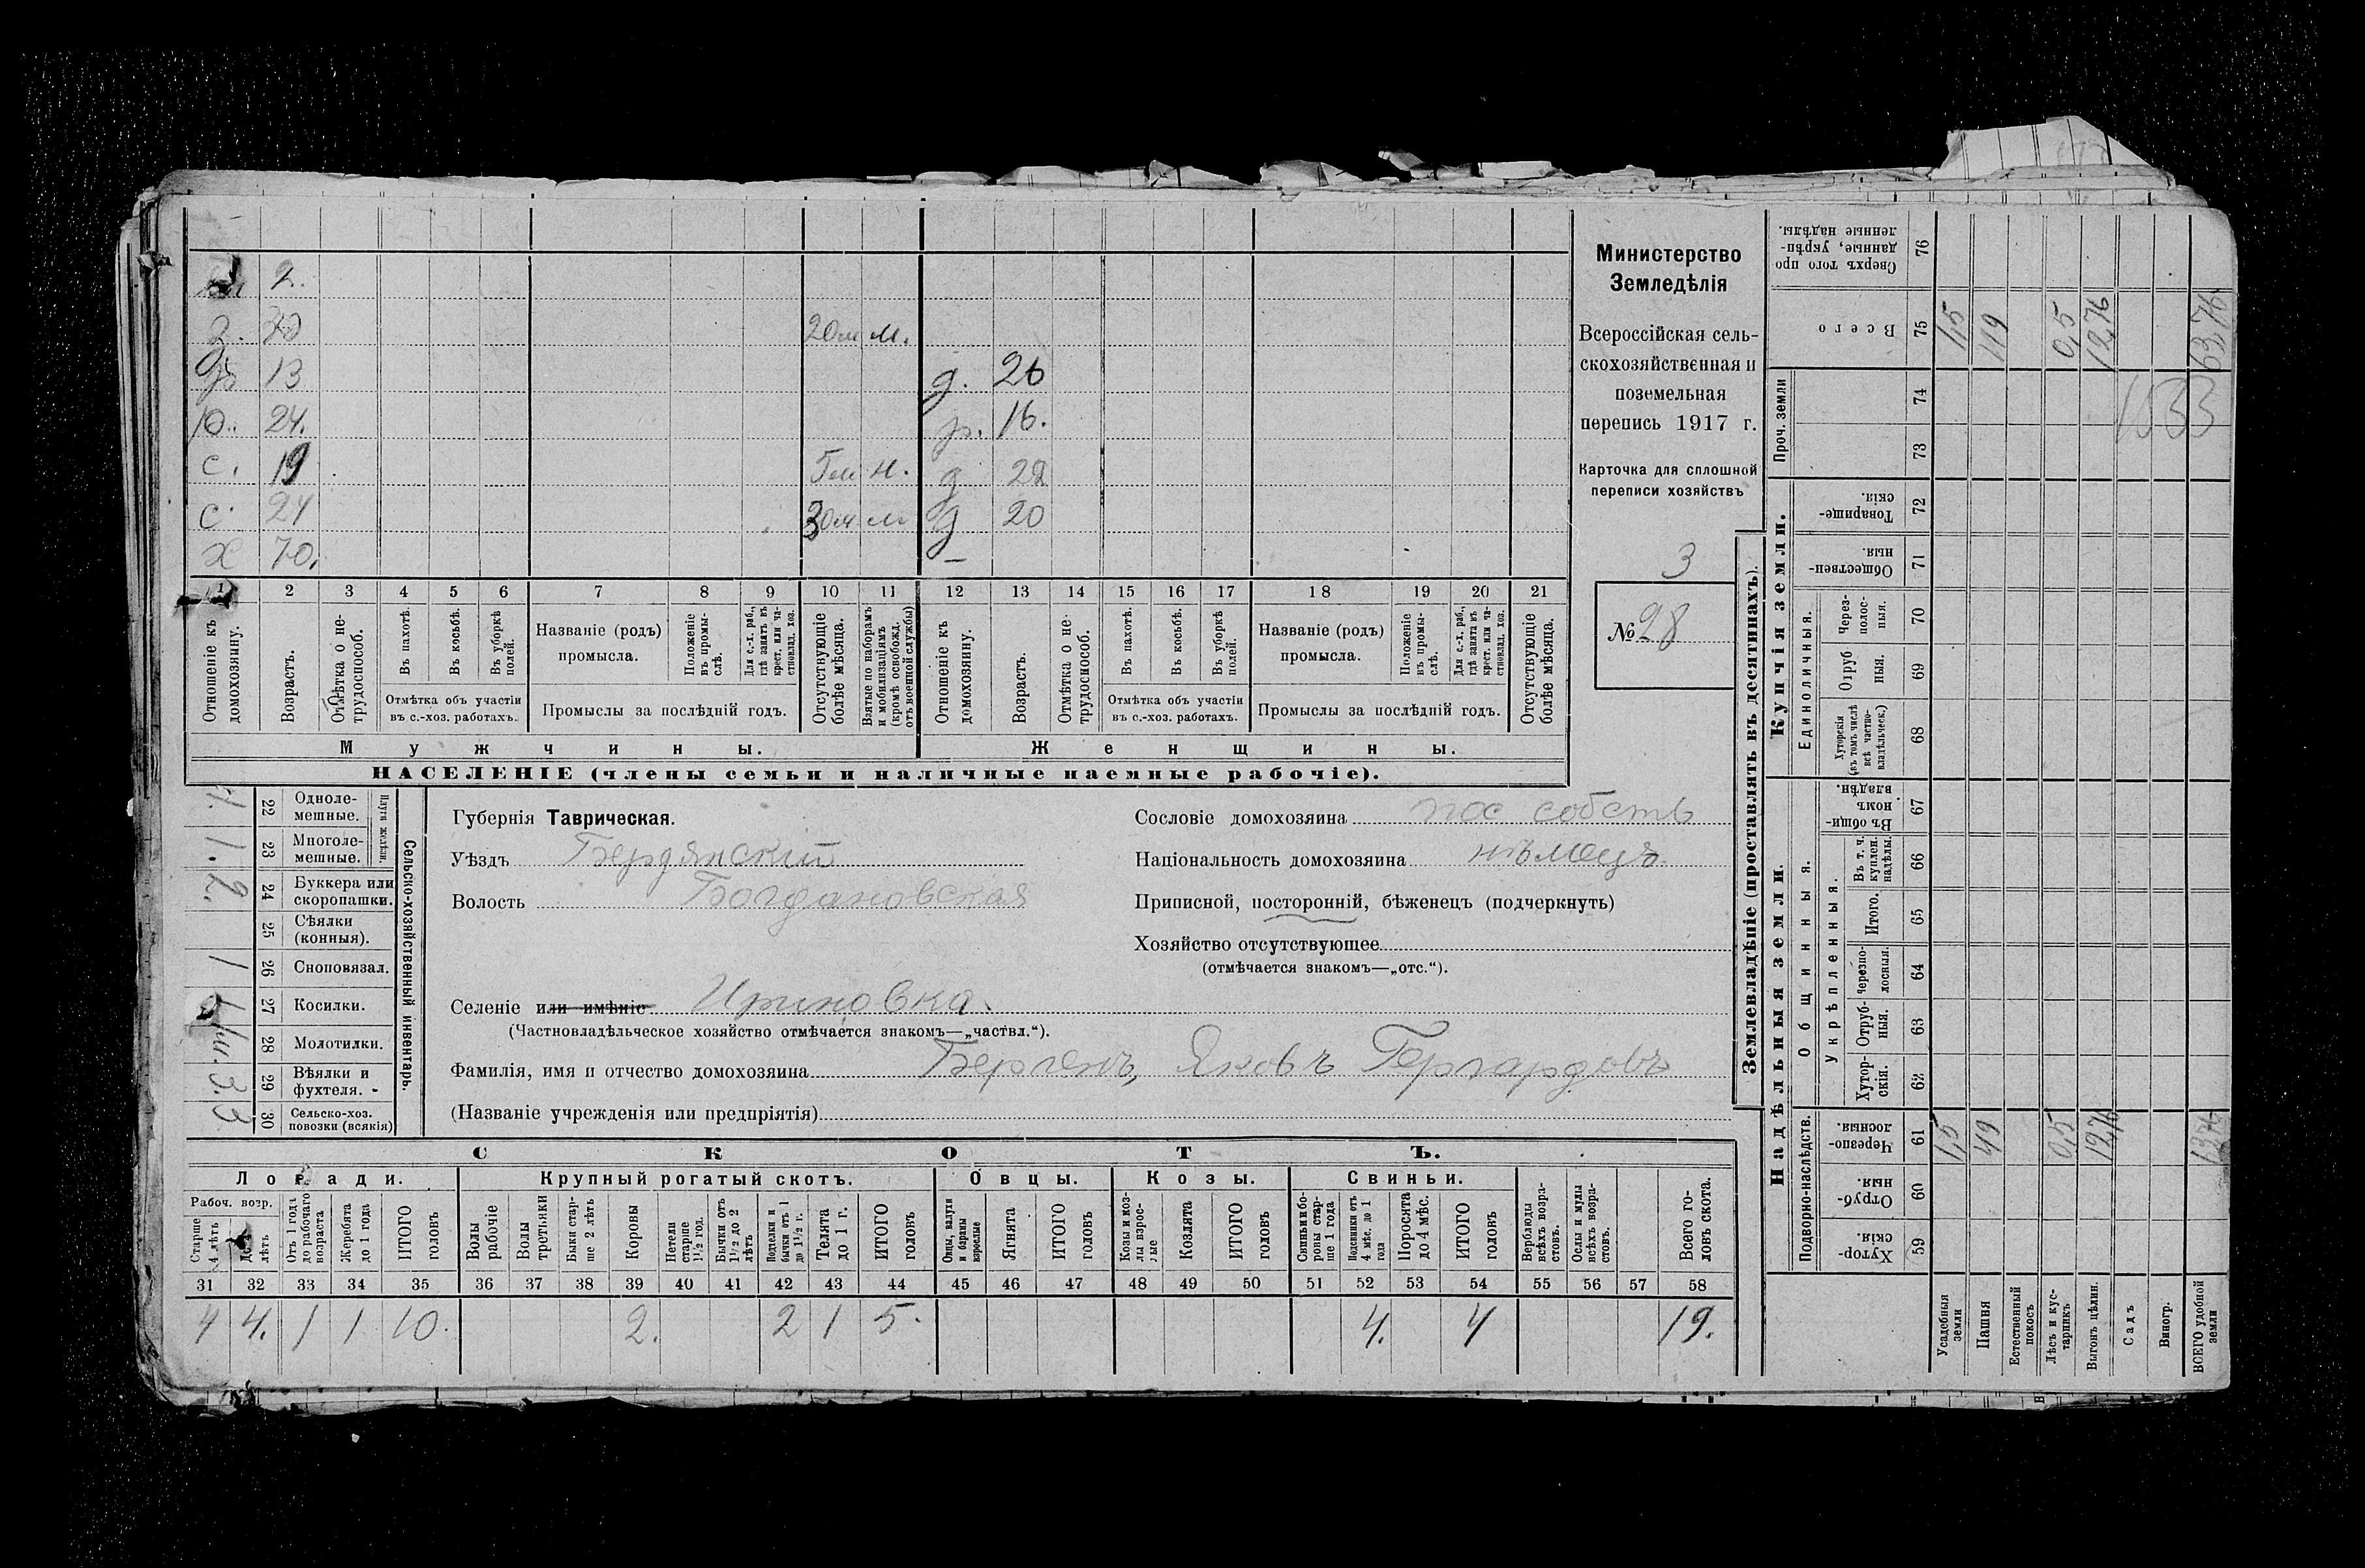 2.
З. 30 20м м.
р 13 д. 26
р. 24. р. 16.
с. 19 5м н. д 22
с. 24 30м м д 20
х 70. —
1 2 3 4 5 6 7 8 9 10 11 12 13 14 15 16 17 18 19 20 21
Отношеніе къ домохозяину.
Возрастъ.
Отмѣтка о нетрудоспособ.
Въ пахотѣ.
Въ косьбѣ.
Въ уборкѣ полей.
Отмѣтка объ участіи въ с.-хоз. работахъ.
Названіе (родъ) промысла.
Положеніе въ промыслѣ.
Для с.-х. раб., гдѣ занятъ въ крест. или частновлад. хоз.
Промыслы за послѣдній годъ.
Отсутствующіе болѣе мѣсяца.
Взятые по наборамъ и мобилизаціямъ (кромѣ освобожд. отъ военной службы)
Отношеніе къ домохозяину.
Возрастъ.
Отмѣтка о нетрудоспособ.
Въ пахотѣ.
Въ косьбѣ.
Въ уборкѣ полей.
Отмѣтка объ участіи въ с.-хоз. работахъ.
Названіе (родъ) промысла.
Положеніе въ промыслѣ.
Для с.-х. раб., гдѣ занята въ крест. или частновлад. хоз.
Промыслы за послѣдній годъ.
Отсутствующіе болѣе мѣсяца.
Мужчины. Женщины.
НАСЕЛЕНІЕ (члены семьи и наличные наемные рабочіе).
Министерство
Земледѣлія
Всероссійская сель-
скохозяйственная и
поземельная
перепись 1917 г.
Карточка для сплошной
переписи хозяйствъ
3
№ 28
Сельско-хозяйственный инвентарь.
Плуги желѣзн.
22 Одноле-
мешные.
1. 23 Многоле-
мешные.
2. 24 Буккера или
скоропашки.
25 Сѣялки
(конныя).
1 26 Сноповязал.
27 Косилки.
28 Молотилки.
3. 29 Вѣялки и
фухтеля.
3 30 Сельско-хоз.
повозки (всякія)
Губернія Таврическая.
Уѣздъ Бердянскій
Волость Богдановская
Селеніе или имѣніе Ириновка.
(Частновладѣльческое хозяйство отмѣчается знакомъ—„частвл.“).
Фамилія, имя и отчество домохозяина Бергенъ, Яковъ Гергардовъ
(Названіе учрежденія или предпріятія)
Сословіе домохозяина пос собств
Національность домохозяина нѣмецъ
Приписной, посторонній, бѣженецъ (подчеркнуть)
Хозяйство отсутствующее
(отмѣчается знакомъ—„отс.“).
СКОТЪ.
Лошади. Крупный рогатый скотъ. Овцы. Козы. Свиньи.
Рабоч. возр.
Старше 4 лѣтъ
До 4 лѣтъ
Отъ 1 года до рабочаго возраста
Жеребята до 1 года
ИТОГО головъ
Волы рабочіе
Волы третьяки
Быки старше 2 лѣтъ
Коровы
Нетели старше 1½ год.
Бычки отъ 1½ до 2 лѣтъ
Подтелки и бычки отъ 1 до 1½ г.
Телята до 1 г.
ИТОГО головъ
Овцы, валухи и бараны взрослые
Ягнята
ИТОГО головъ
Козы и козлы взрослые
Козлята
ИТОГО головъ
Свиньи и боровы старше 1 года
Подсвинки отъ 4 мѣс. до 1 года
Поросята до 4 мѣс.
ИТОГО головъ
Верблюды всѣхъ возрастовъ.
Ослы и мулы всѣхъ возрастовъ.
Всего головъ скота.
31 32 33 34 35 36 37 38 39 40 41 42 43 44 45 46 47 48 49 50 51 52 53 54 55 56 57 58
4 4. 1 1 10. 2. 2 1 5. 4. 4 19.
Землевладѣніе (проставлять въ десятинахъ).
Надѣльныя земли. Купчія земли.
Подворно-наслѣдств.
Общинныя.
Укрѣпленныя.
Единоличныя.
Проч. земли
59 Хуторскія.
60 Отрубныя.
61 Черезполосныя.
62 Хуторскія.
63 Отрубныя.
64 Черезполосныя.
65 Итого.
66 Въ т. ч. куплен. надѣлы.
67 Въ общинномъ владѣн.
68 Хуторскія (въ томъ числѣ всѣ частновладѣльческ.)
69 Отрубныя.
70 Черезполосныя.
71 Общественныя.
72 Товарищескія.
73
74
75 Всего
76 Сверхъ того проданные, укрѣпленные надѣлы.
Усадебныя земли 1,5 1,5
Пашня 49 119
Естественный покосъ
Лѣсъ и кустарникъ 0,5 0,5
Выгонъ цѣлин. 12,76 12,76
Садъ
Виногр.
ВСЕГО удобной земли 63,76 63,76
1533